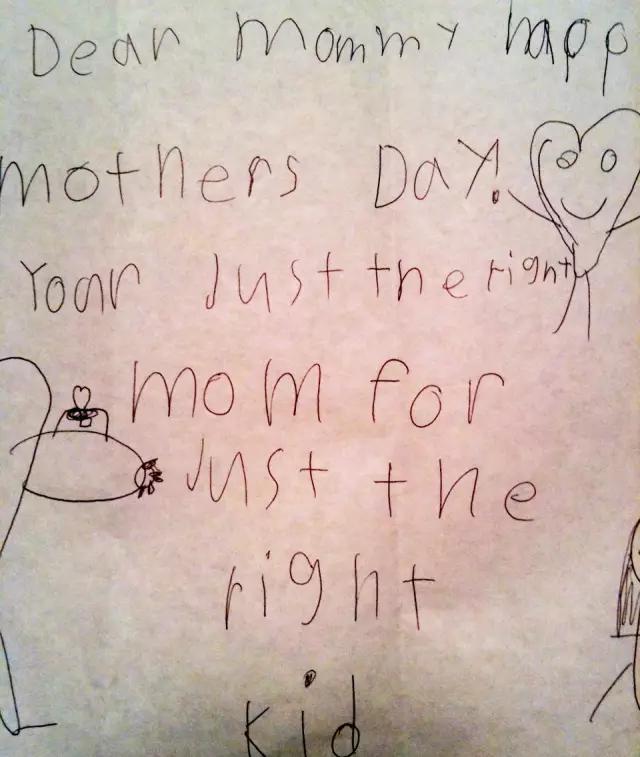 Dear mommy happ
mothers Day!
Yoar Just the right
mom for
Just the
right
kid